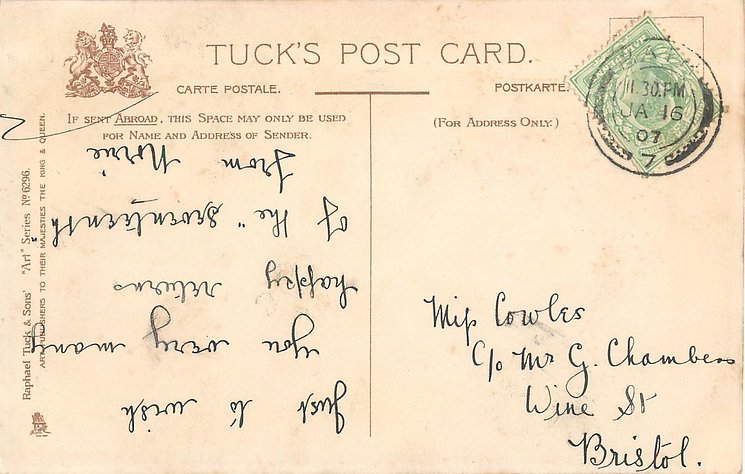 TUCK'S POST CARD.
CARTE POSTALE.
POSTKARTE.
IF SENT ABROAD, THIS SPACE MAY ONLY BE USED
FOR NAME AND ADDRESS OF SENDER.
(FOR ADDRESS ONLY.)
Raphael Tuck & Sons' "Art" Series No 6296.
ART PUBLISHERS TO THEIR MAJESTIES THE KING & QUEEN.
Just to wish
you very many
happy returns
of the "seventeenth"
from Norrie
11.30 PM
JA 16
07
7
Miss Cowles
C/o Mr G. Chambers
Wine St
Bristol.